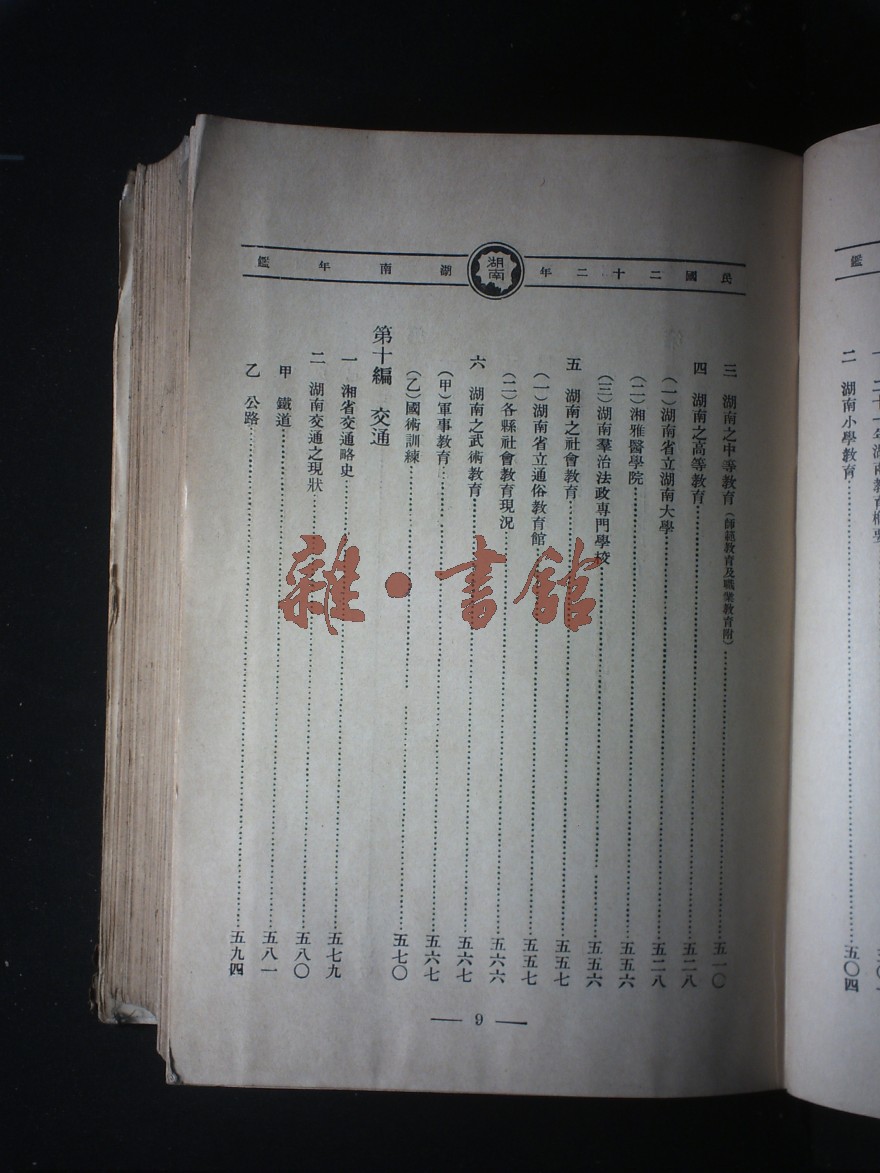 民國二十二年湖南年鑑
湖南
三 湖南之中等教育（師範教育及職業教育附）…………五一〇
四 湖南之高等教育…………五二八
（一）湖南省立湖南大學…………五二八
（二）湘雅醫學院…………五五六
（三）湖南羣治法政專門學校…………五五六
五 湖南之社會教育…………五五七
（一）湖南省立通俗教育館…………五五七
（二）各縣社會教育現況…………五六六
六 湖南之武術教育…………五六七
（甲）軍事教育…………五六七
（乙）國術訓練…………五七〇
第十編 交通
一 湘省交通略史…………五七九
二 湖南交通之現狀…………五八〇
甲 鐵道…………五八一
乙 公路…………五九四
— 9 —
雜·書館
鑑
二 湖南小學教育…………五〇四